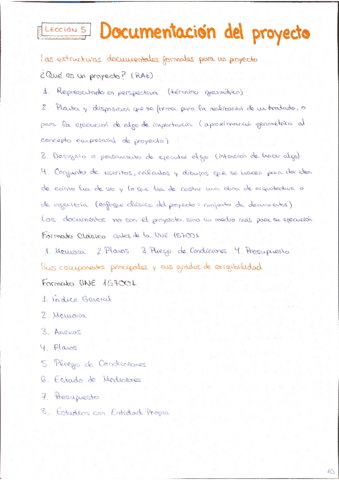 LECCIÓN 5 Documentación del proyecto
Las estructuras documentales formales para un proyecto
¿Qué es un proyecto? (RAE)
1. Representado en perspectiva (término geométrico)
2. Planta y disposición que se forma para la realización de un tratado, o
para la ejecución de algo de importancia (aproximación geométrica al
concepto empresarial de proyecto)
3. Designio o pensamiento de ejecutar algo (intención de hacer algo)
4. Conjunto de escritos, cálculos y dibujos que se hacen para dar idea
de cómo ha de ser y lo que ha de costar una obra de arquitectura o
de ingeniería (enfoque clásico del proyecto: conjunto de documentos)
Los documentos no son el proyecto, sino un medio más para su ejecución
Formato Clásico antes de la UNE 157001
1. Memoria 2. Planos 3. Pliego de Condiciones 4. Presupuesto
Sus componentes principales y sus grados de exigibilidad
Formato UNE 157001
1. Índice General
2. Memoria
3. Anexos
4. Planos
5. Pliego de Condiciones
6. Estado de Mediciones
7. Presupuesto
8. Estudios con Entidad Propia